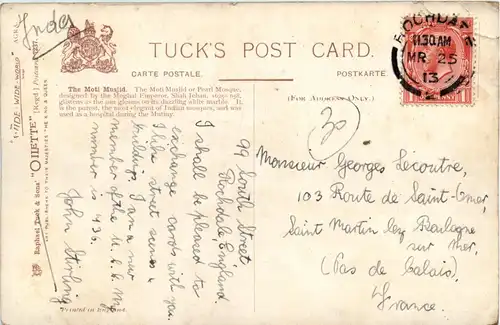 Inde
TUCK'S POST CARD.
CARTE POSTALE.
POSTKARTE.
(FOR ADDRESS ONLY.)
The Moti Musjid. The Moti Musjid or Pearl Mosque,
designed by the Moghul Emperor, Shah Jehan,
glistens as the sun glances on its dazzling white marble. It is
the purest, the most elegant of Indian mosques, and was
used as a hospital during the Mutiny.
"WIDE-WIDE-WORLD"
Raphael Tuck & Sons' "OILETTE" [Regd.] Postcard
ART PUBLISHERS TO THEIR MAJESTIES THE KING & QUEEN
Printed in England.
ROCHDALE
11.30 AM
MR 25
13
2
30
99 South Street
Rochdale England.
I shall be pleased to
exchange cards with you.
I like street scenes &
buildings. I am a new
member of the My
number is 436.
John Stirling
Monsieur Georges Lecoutre,
103 Route de Saint-Omer,
Saint Martin lez Boulogne
sur Mer,
(Pas de Calais),
France.